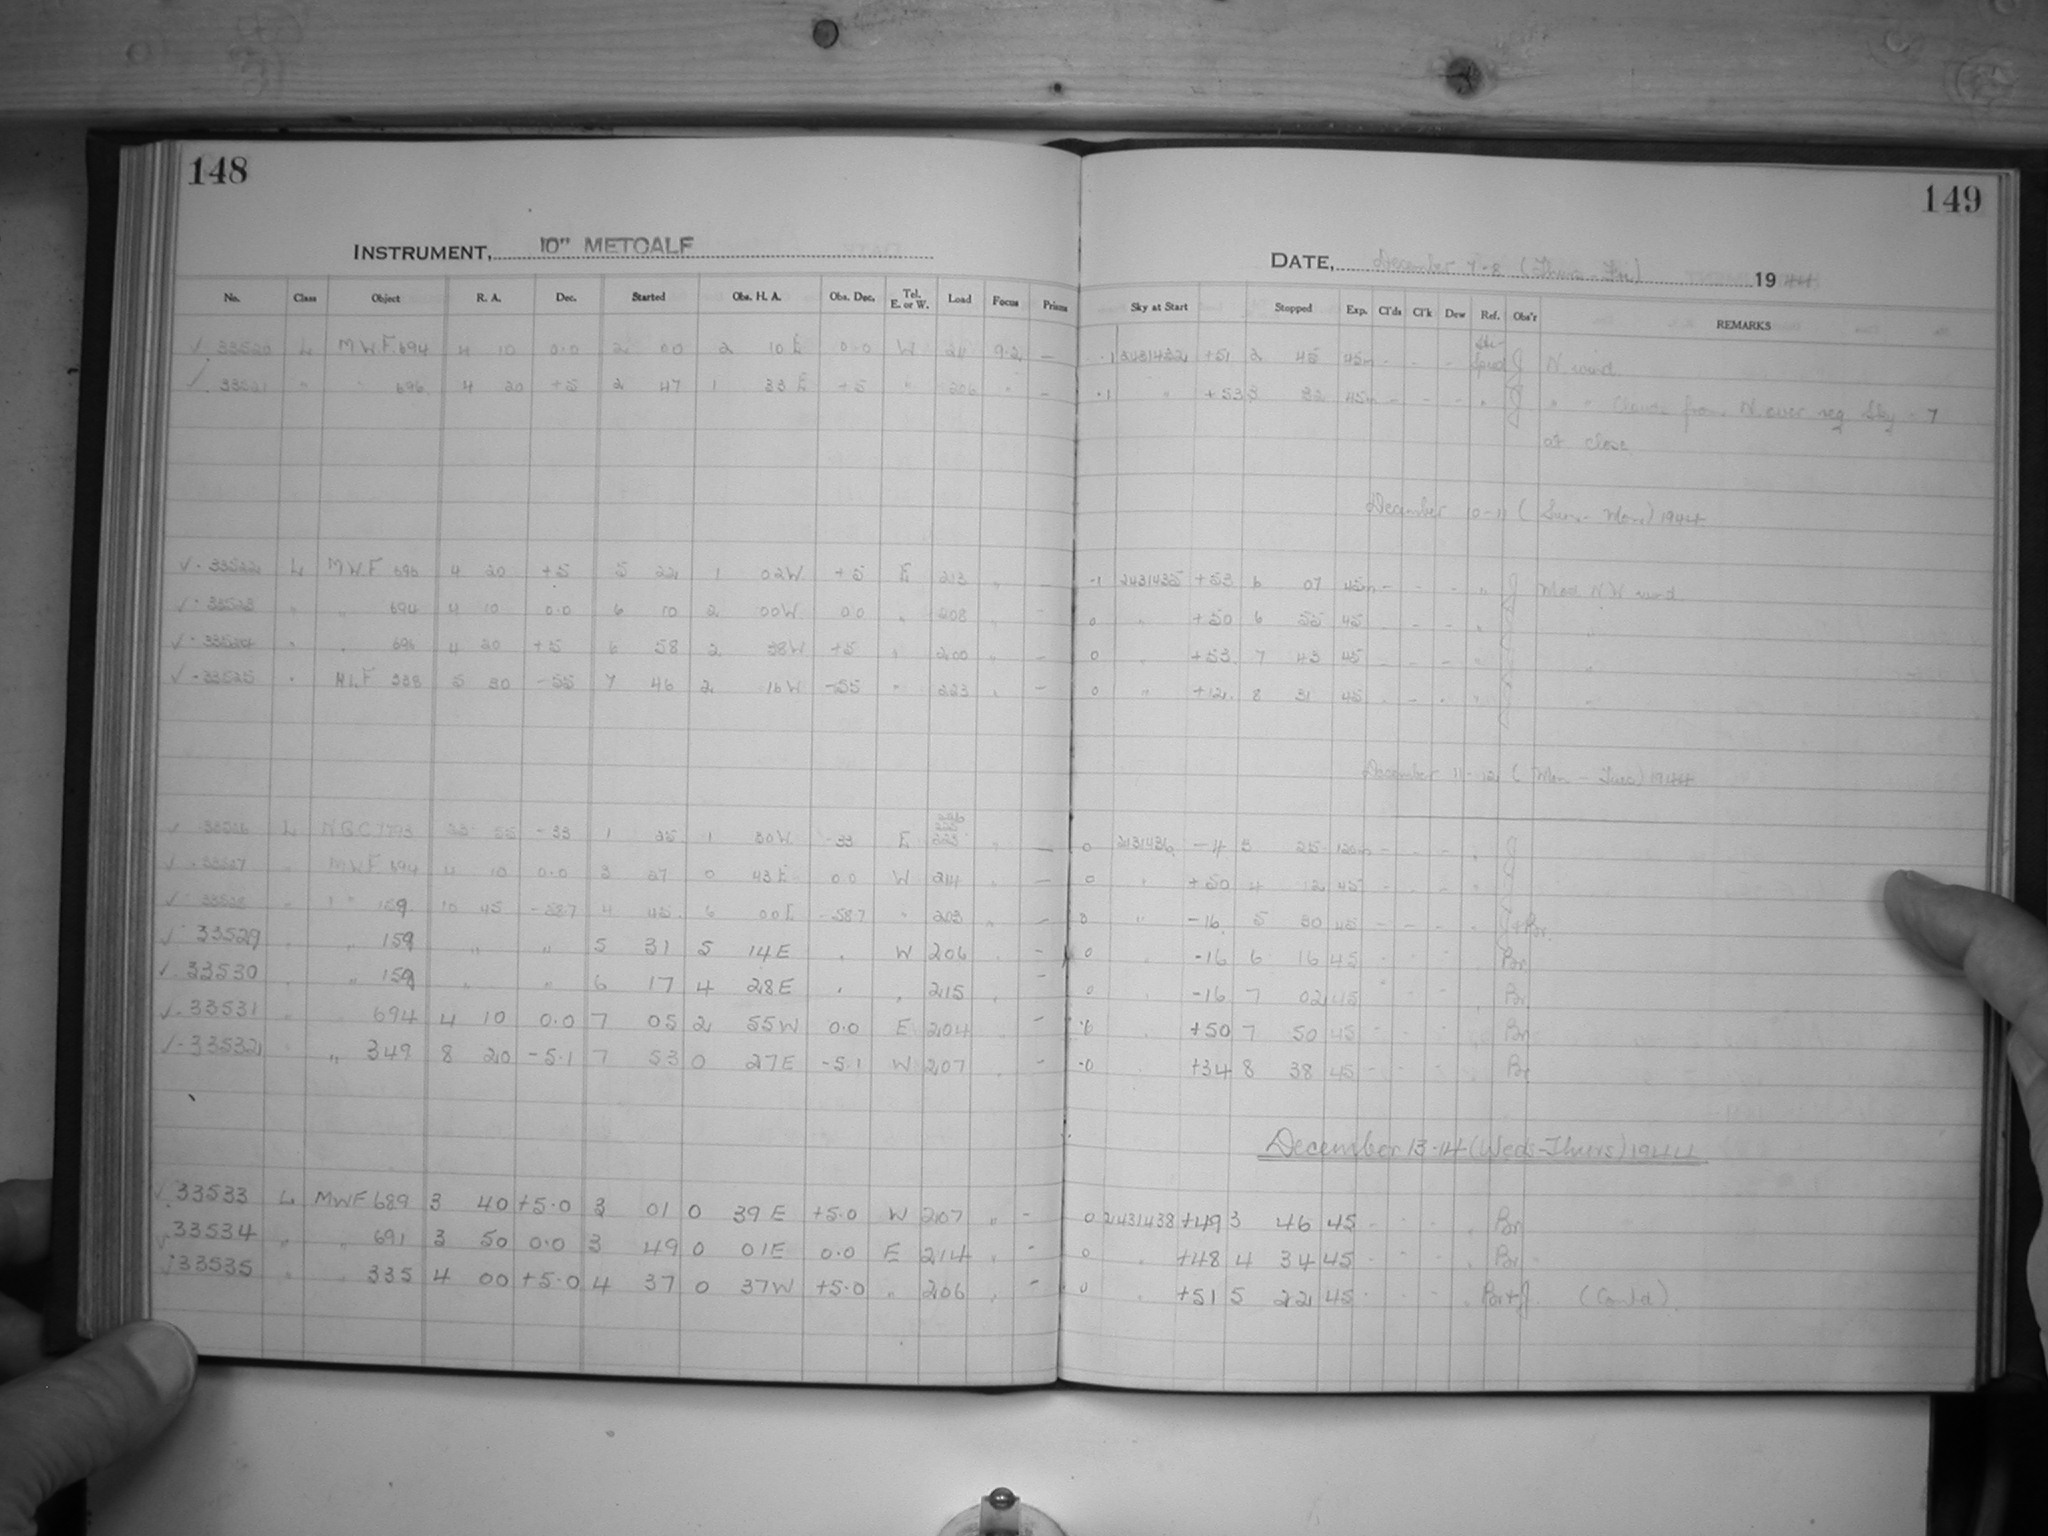 148
INSTRUMENT, 10" METCALF
No. Class Object R. A. Dec. Started Obs. H. A. Obs. Dec. Tel. E. or W. Load Focus Prisms
✓ 33520 L MWF 694 4 10 0.0 2 00 2 10 E 0.0 W 211 9.2 —
✓ 33521 " " 696 4 20 +5 2 47 1 33 E +5 " 206 " —
✓ 33522 L MWF 696 4 20 +5 5 22 1 02W +5 E 213 " —
✓ 33523 " " 694 4 10 0.0 6 10 2 00W 0.0 " 208 " —
✓ 33524 " " 696 4 20 +5 6 58 2 38W +5 " 200 " —
✓ 33525 " HLF 338 5 30 -55 7 46 2 16W -55 " 223 " —
✓ 33526 L NGC 7793 23 55 -33 1 25 1 30W -33 E 223 " —
✓ 33527 " MWF 694 4 10 0.0 3 27 0 43E 0.0 W 214 " —
✓ 33528 " " 159 10 45 -58.7 4 45 6 00E -58.7 " 203 " —
✓ 33529 " " 159 " " 5 31 5 14E " W 206 " -
✓ 33530 " " 159 " " 6 17 4 28E " " 215 " -
✓ 33531 " 694 4 10 0.0 7 05 2 55W 0.0 E 204 " -
✓ 33532 " " 349 8 20 -5.1 7 53 0 27E -5.1 W 207 " -
✓ 33533 L MWF 689 3 40 +5.0 3 01 0 39 E +5.0 W 207 " -
✓ 33534 " " 691 3 50 0.0 3 49 0 01E 0.0 E 214 " -
✓ 33535 " " 335 4 00 +5.0 4 37 0 37W +5.0 " 206 " -
149
DATE, December 7-8 (Thurs-Fri) 1944
Sky at Start Stopped Exp. Cl'ds Cl'k Dew Ref. Obs'r REMARKS
.1 2431432 +51 2 45 45m - - - J N wind
.1 " +53 3 32 45m - - - " J " " Clouds from N over reg. Sky - 7
at close
December 10-11 (Sun-Mon) 1944
.1 2431435 +53 6 07 45m - - - " J Mod. NW wind
0 " +50 6 55 45 - - - " J "
0 " +53 7 43 45 - - - " J "
0 " +12 8 31 45 - - - " J "
December 11-12 (Mon-Tues) 1944
0 2431436 -4 3 25 120m - - - " J
0 " +50 4 12 45 - - - " J
0 " -16 5 30 45 - - - " J+Br.
0 " -16 6 16 45 - - - " Br
0 " -16 7 02 45 - - - " Br
0 " +50 7 50 45 - - - " Br
0 " +34 8 38 45 - - - " Br
December 13-14 (Weds-Thurs) 1944
0 2431438 +49 3 46 45 - - - " Br
0 " +48 4 34 45 - - - " Br
0 " +51 5 22 45 - - - " Br+J. (Cont'd).